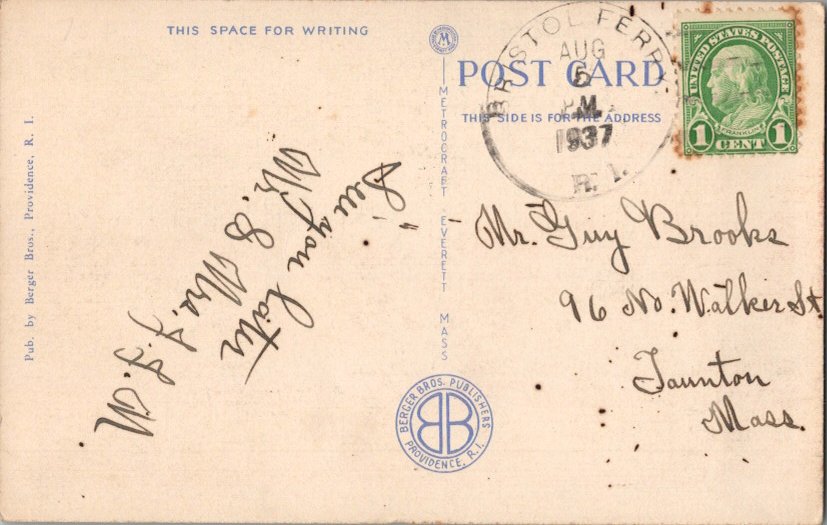 THIS SPACE FOR WRITING
Pub. by Berger Bros., Providence, R. I.
"See you later"
Mr. & Mrs. J. J. M.
M
METROCRAFT EVERETT MASS
BERGER BROS. PUBLISHERS
BB
PROVIDENCE, R.I.
POST CARD
THIS SIDE IS FOR THE ADDRESS
BRISTOL FERRY
AUG
5
P.M.
1937
R. I.
UNITED STATES POSTAGE
FRANKLIN
1 CENT 1
Mr. Guy Brooks
96 No. Walker St
Taunton
Mass.